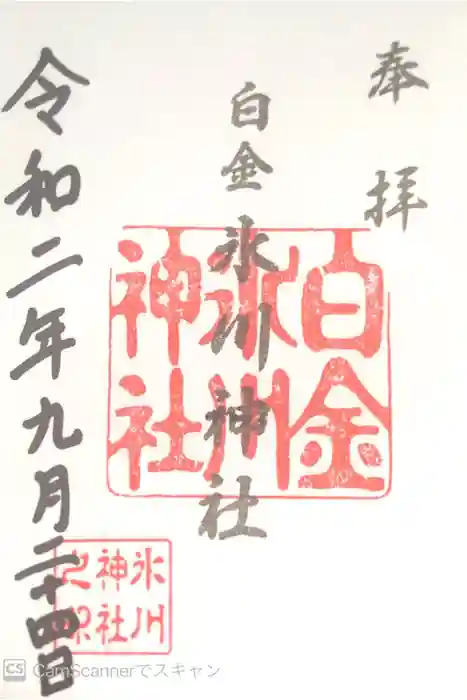 奉拝
白金
氷川神社
白金
氷川
神社
令和二年九月二十四日
氷川
神社
之
CS CamScannerでスキャン